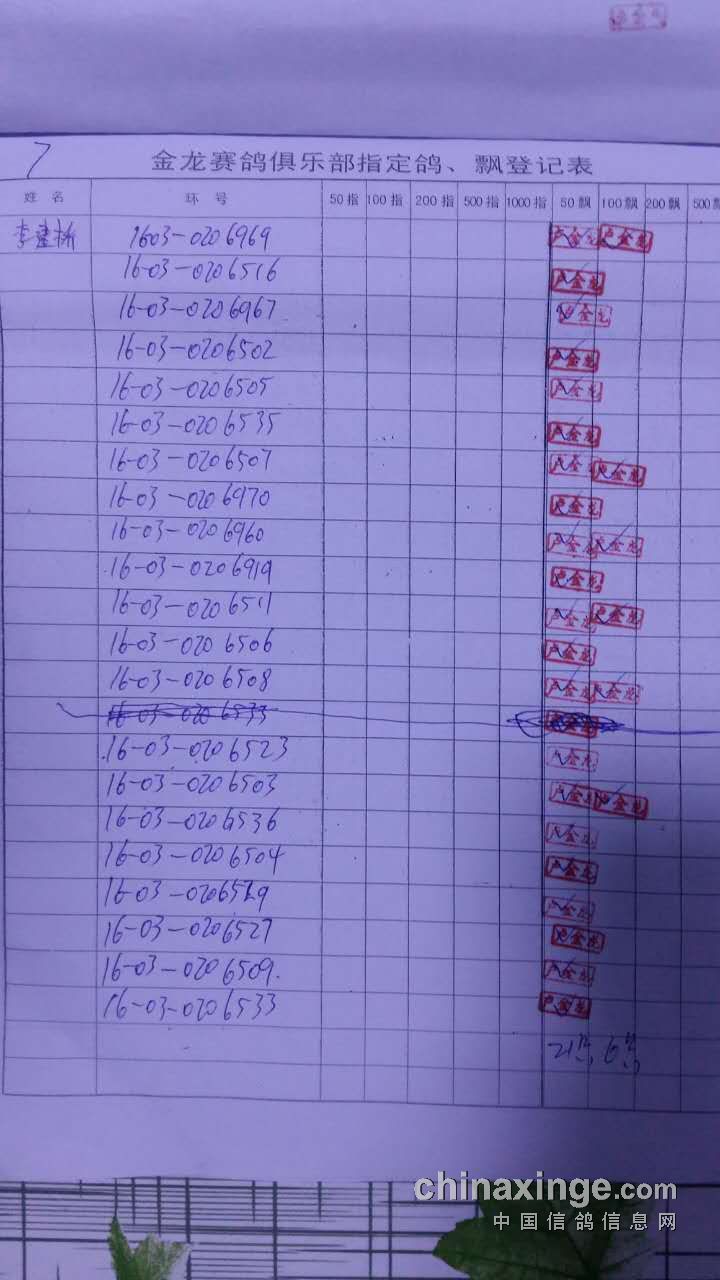 7
金龙赛鸽俱乐部指定鸽、飘登记表
姓 名 环 号 50指 100指 200指 500指 1000指 50飘 100飘 200飘 500飘
李建 1603-0206969
16-03-0206516
16-03-0206967
16-03-0206502
16-03-0206505
16-03-0206535
16-03-0206507
16-03-0206970
16-03-0206960
16-03-0206919
16-03-0206511
16-03-0206506
16-03-0206508
16-03-0206533
16-03-0206523
16-03-0206503
16-03-0206536
16-03-0206504
16-03-0206529
16-03-0206527
16-03-0206509
16-03-0206533
21 6
chinaxinge.com
中国信鸽信息网